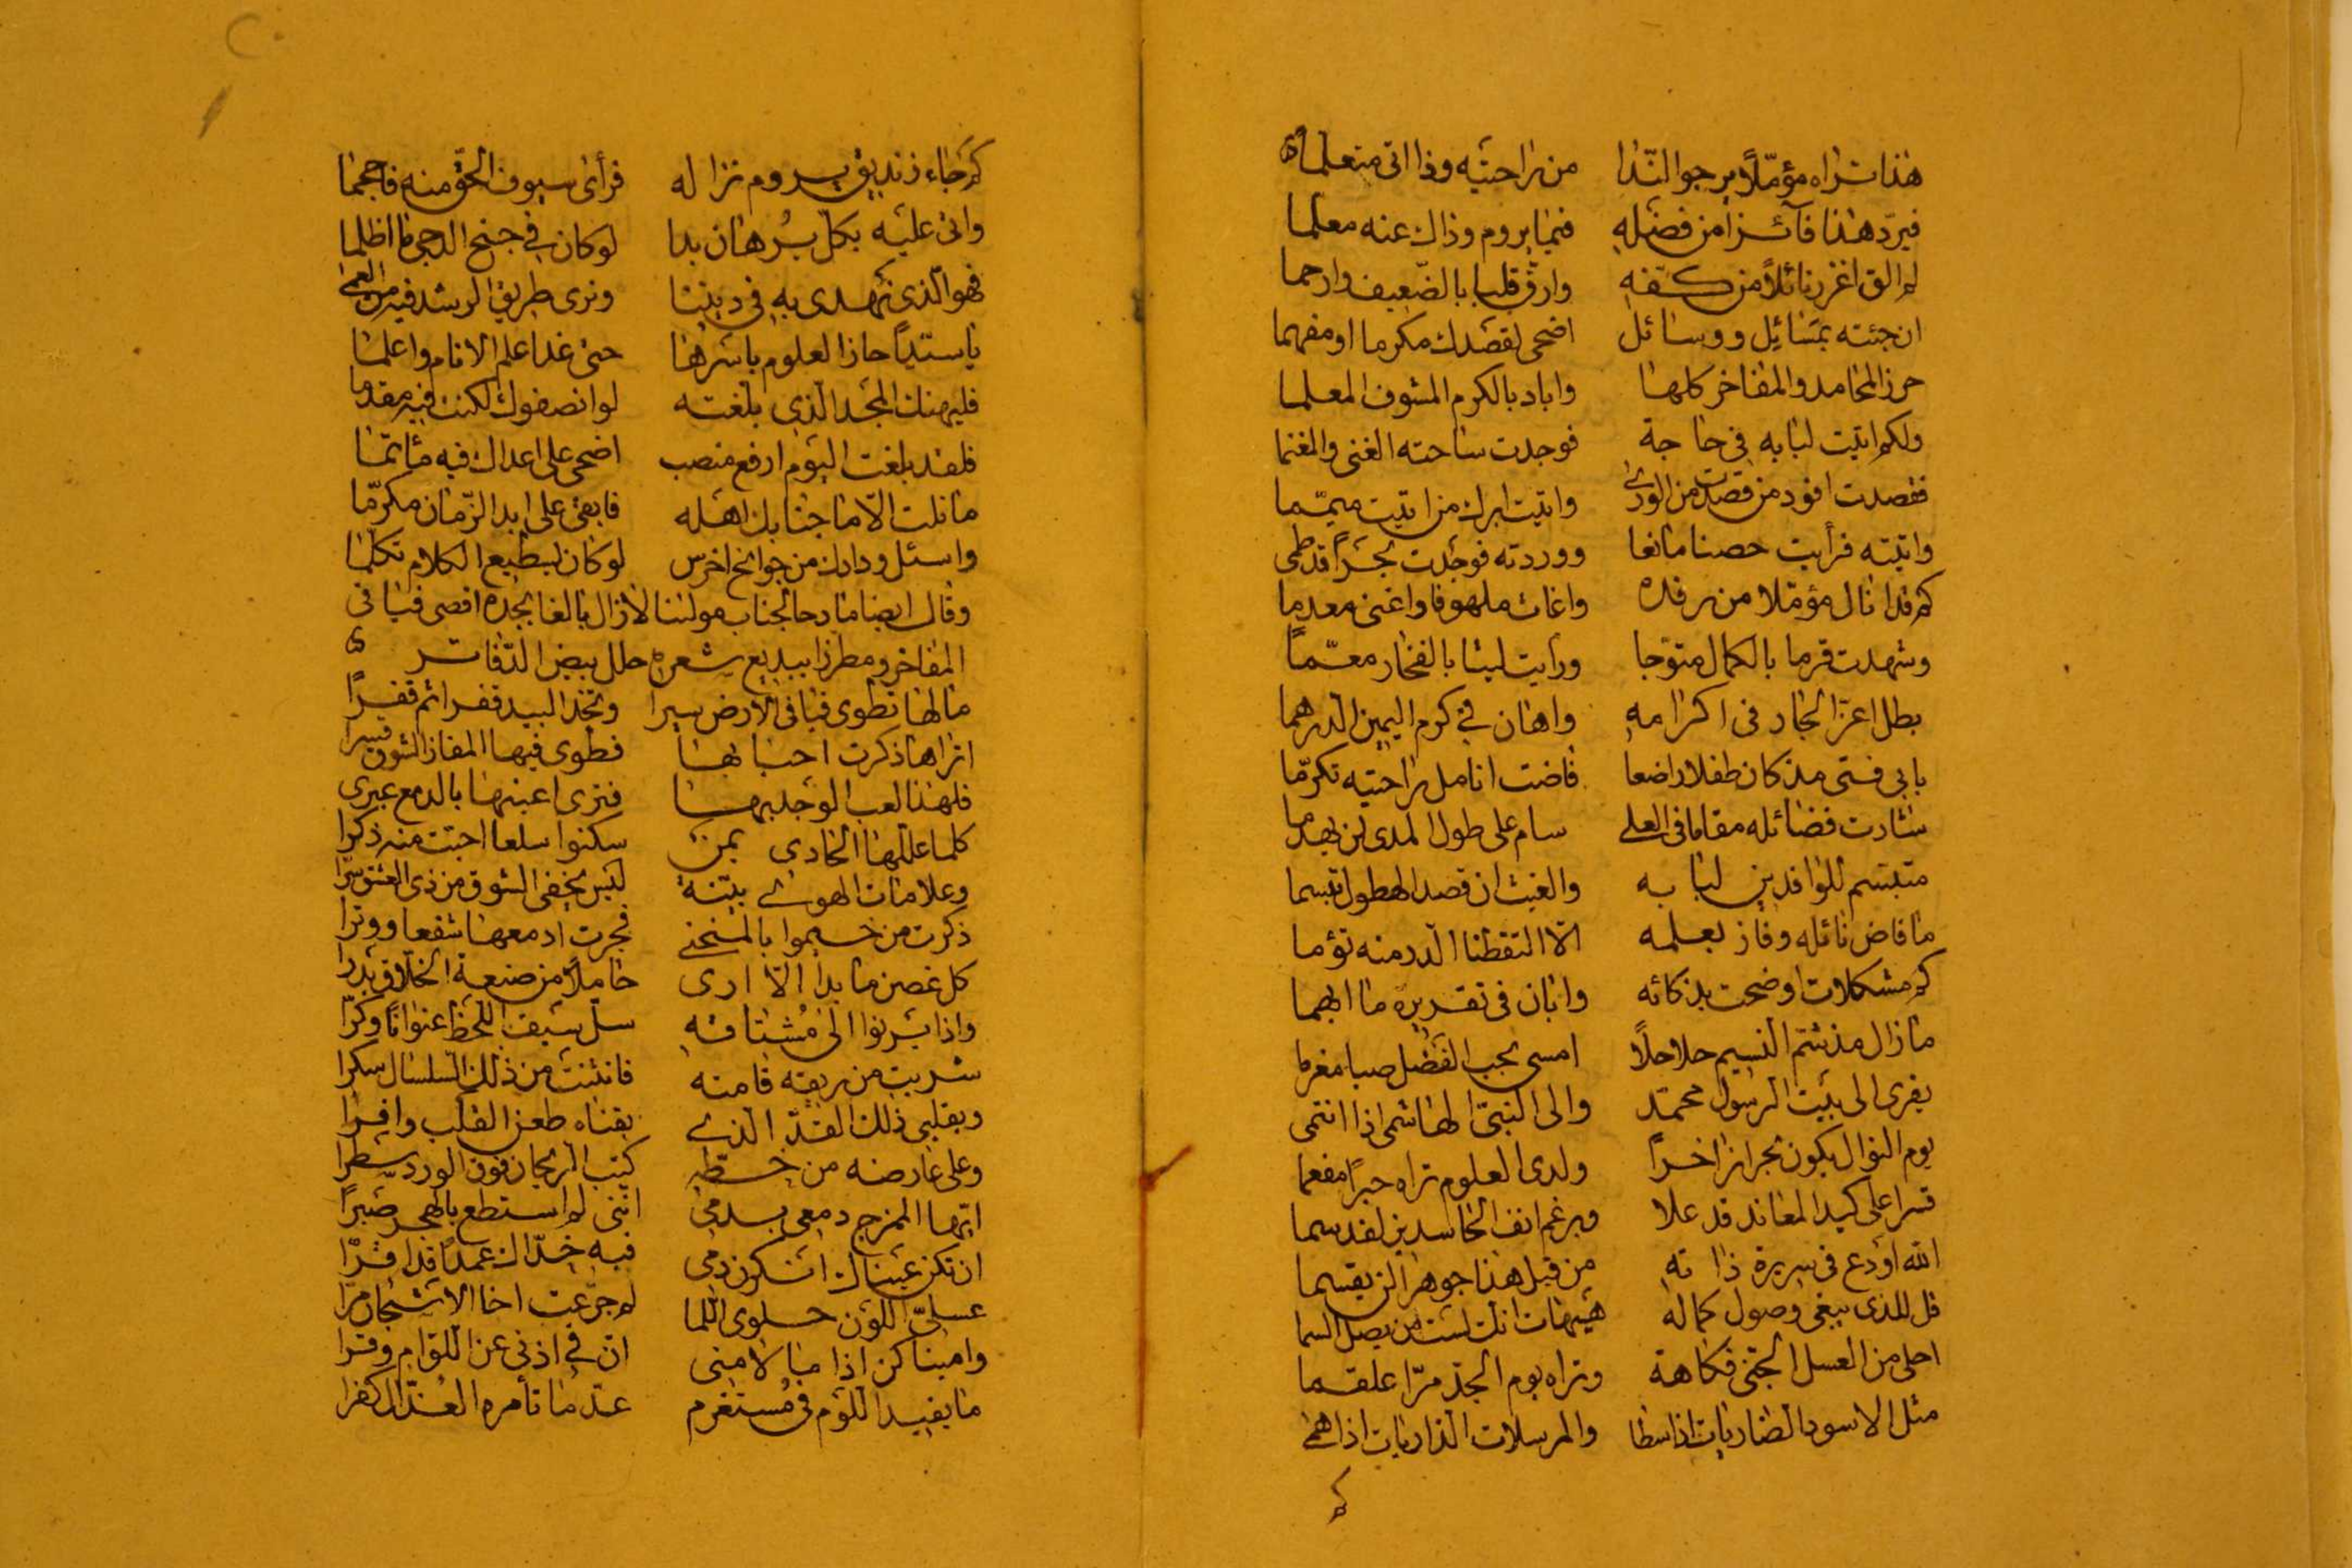 هذا تراه مؤمّلاً يرجو النّدا من راحتيه وذا اتى متعلما
فيردّ هذا فآئزا من فضله فيما يروم وذاك عنه معلما
لم الق اغزر نائلاً من كفه وارق قلبا بالضّعيف وارحما
ان جئته بمسائل ووسائل اضحى لقصدك مكرما او مفهما
حرز المحامد والمفاخر كلها واباد بالكرم المشوف المعلما
ولكم اتيت لبابه في حاجة فوجدت ساحته الغنى والمغنما
فقصدت افود من قصدت من الورى واتيت ابرك من اتيت ميمّما
واتيته فرأيت حصنا مانعا ووردته فوجدت بحراً قد طمى
كم قد انال مؤمّلا من رفده واغاث ملهوفا واغنى معدما
وشهدت قرما بالكمال متوجا ورايت ليثا بالفخار معمّماً
بطل اعزّ الجار في اكرامه واهان في كرم اليمين الدرهما
بابي فتى مذ كان طفلا راضعا فاضت انامل راحتيه تكرّما
شادت فضائله مقاما في العلى سام على طول المدى لن يهدما
متبسّم للوافدين لبابه والغيث ان قصد الهطول تبسما
ما فاض نائله وفاز بعلمه الّا التقطنا الدر منه توئما
كم مشكلات اوضحت بذكائه وابان في تقريره ما ابهما
ما زال مذ شمّ النسيم حلاحلاً امسى بحب الفضل صبا مغرما
يعزى الى بيت الرسول محمّد والى النبيّ الهاشمى اذا انتمى
يوم النوال يكون بحرا زاخراً ولدى العلوم تراه حبراً مفعما
قسرا على كيد المعاند قد علا وبرغم انف الحاسدين لقد سما
الله اودع في سريرة ذاته من قبل هذا جوهرا لن يقسما
قل للذى يبغى وصول كماله هيهات انك لست من يصل السما
احلى من العسل الجنى فكاهة وتراه يوم الجدّ مرّا علقما
مثل الاسود الضاريات اذا سطا والمرسلات الذاريات اذا همى
كم
كم جاء زنديق يروم نزاله فرأى سيوف الحقّ منه فاحجما
واتى عليه بكل برهان بدا لو كان في جنح الدجى ما اظلما
فهو الّذى نهدى به في ديننا ونرى طريق الرشد فيه من العمى
يا سيّداً حاز العلوم باسرها حتى غدا علم الانام واعلما
فليهنك المجد الّذى بلغته لو انصفوك لكنت فيه مقدما
فلقد بلغت اليوم ارفع منصب اضحى على اعداك فيه مأتما
ما نلت الّا ما جنابك اهله فابقى على ابد الزّمان مكرّما
واسئل ودادك من جوانح اخرس لو كان يسطيع الكلام تكلّما
وقال ايضا مادحا لجناب مولانا لا زال بالغا بمجده اقصى فيافى
المفاخر ومطرزا ببديع شعره حلل بيض الدّفاتر
ما لها تطوى فيافى الارض سيرا وتخد البيد قفرا ثم قفراً
اتراها ذكرت احبابها فطوى فيها المفاز الشوق قسرا
فلهذا لعب الوجد بها فترى اعينها بالدمع عبرى
كلما عللها الحادى بمن سكنوا سلعا اجتت منه ذكرا
وعلامات الهوى بيّنة ليس يخفى الشوق من ذى العشق سرّا
ذكرت من خيموا بالمنحنى فجرت ادمعها شفعا ووترا
كل غصن ما بدا الّا ارى حاملاً من صنعة الخلّاق بدرا
واذا يرنوا الى مشتاقه سلّ سيف اللحظ عنوانا وكرّا
شربت من ريقه قامته فانثنت من ذلك السّلسال سكرا
وبقلبى ذلك القدّ الذى بقناه طعن القلب وافرى
وعلى عارضه من خطّه كتب الريحان فوق الورد سطرا
ايّها الممزج دمعى بدمى انّنى لم استطع بالهجر صبراً
ان تكن عيناك انكرن دمى فبه خدّاك عمداً قد اقرّا
عسلىّ اللون حلوى اللما لم جرّعت اخا الاشجان مرّا
واميناكن اذا ما لامنى انّ في اذنى عن اللّوام وقرا
ما يفيد اللّوم في مستغرم عدّ ما تأمره العذّال كفرا